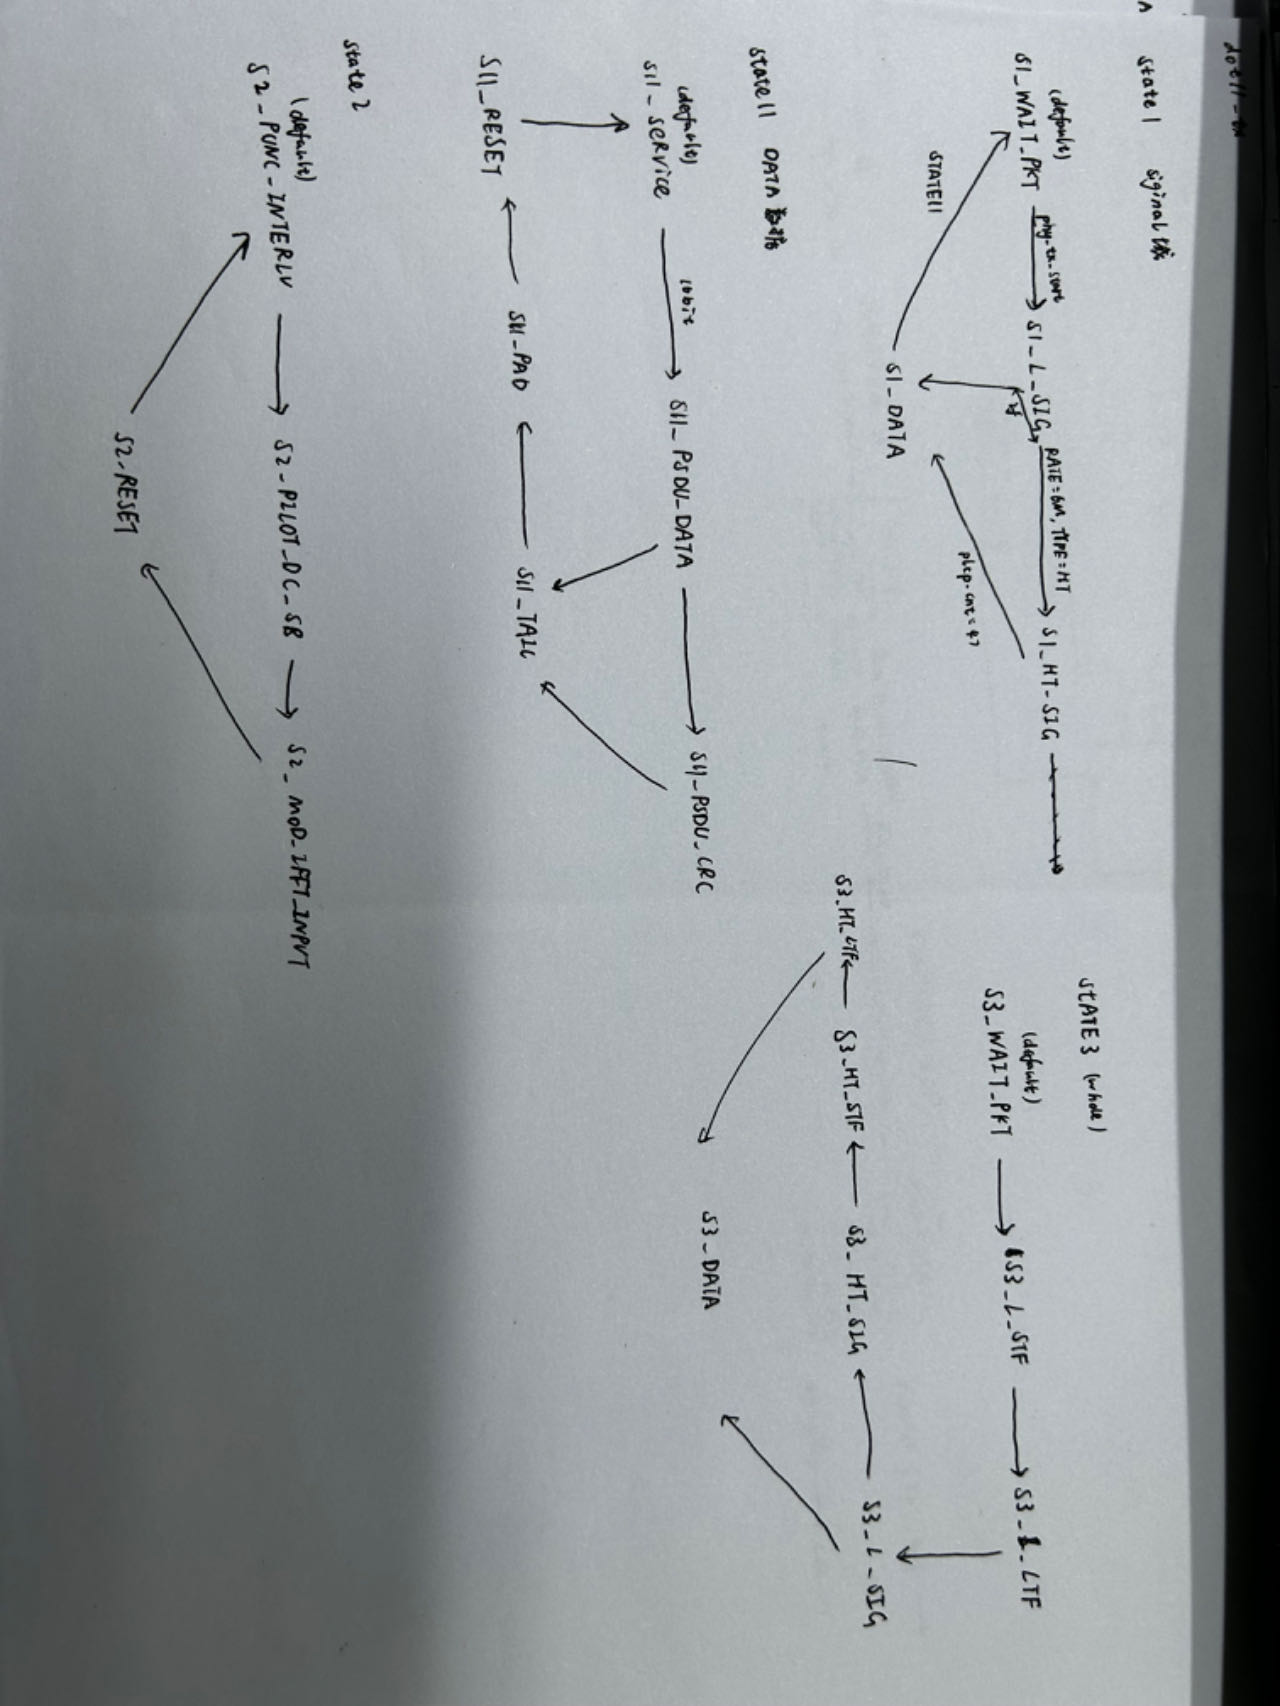 dot11-tx
state1 siginal域
(default)
S1_WAIT_PKT
phy-tx-start
S1_L_SIG
RATE=6M, TYPE=HT
S1_HT-SIG
plcp-cnt=47
STATE11
S1_DATA
state11 DATA数据
(default)
S11_SERVICE
16bit
S11_PSDU_DATA
S11_PSDU_CRC
S11_TAIL
S11_PAD
S11_RESET
state2
(default)
S2_PUNC-INTERLV
S2-PILOT_DC_SB
S2_MOD_IFFT_INPUT
S2-RESET
STATE3 (whole)
(default)
S3_WAIT_PKT
S3_L_STF
S3_L_LTF
S3_L_SIG
S3_HT_SIG
S3_HT_STF
S3_HT_LTF
S3_DATA